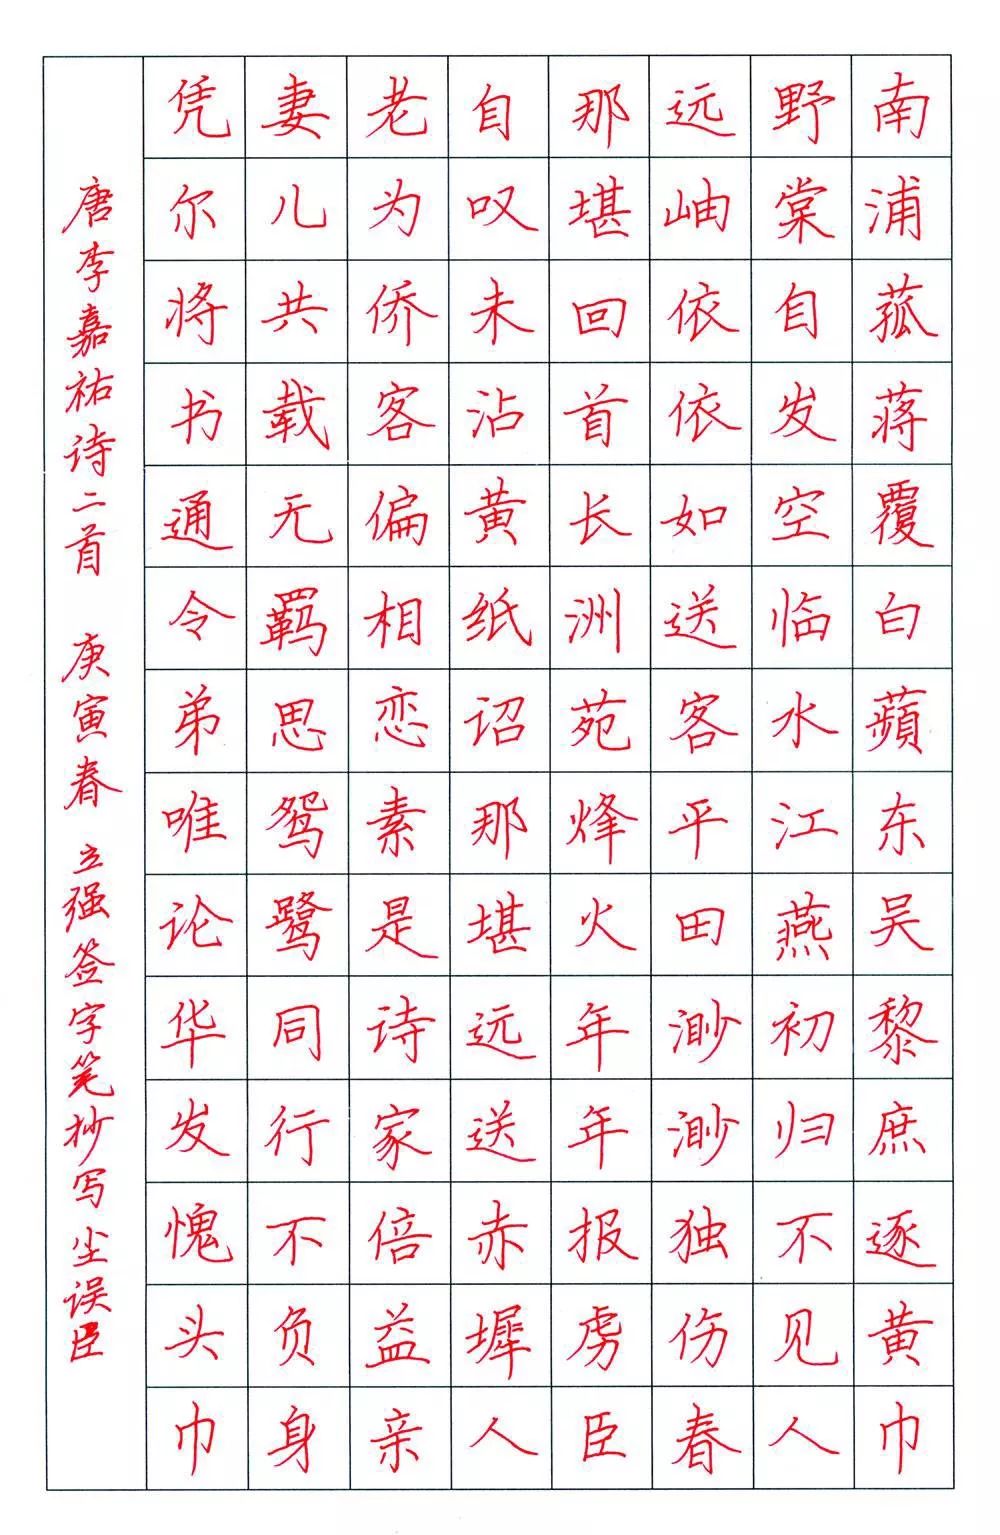 南浦菰蒋覆白蘋东吴黎庶逐黄巾
野棠自发空临水江燕初归不见人
远岫依依如送客平田渺渺独伤春
那堪回首长洲苑烽火年年报虏臣
自叹未沾黄纸诏那堪远送赤墀人
老为侨客偏相恋素是诗家倍益亲
妻儿共载无羁思鸳鹭同行不负身
凭尔将书通令弟唯论华发愧头巾
唐李嘉祐诗二首 庚寅春 立强签字笔抄写尘误臣